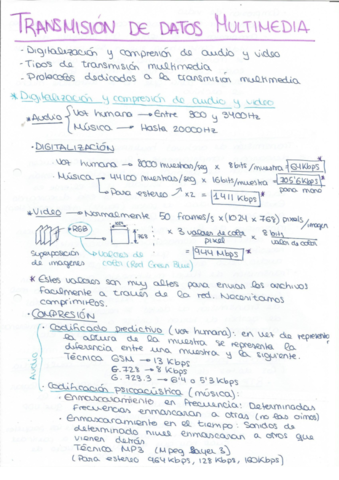 TRANSMISIÓN DE DATOS MULTIMEDIA
- Digitalización y compresión de audio y video
- Tipos de transmisión multimedia
- Protocolos dedicados a la transmisión multimedia
* Digitalización y compresión de audio y video
* Audio Voz humana → Entre 300 y 3400Hz
Música → Hasta 20000Hz
· DIGITALIZACIÓN
Voz humana → 8000 muestras/seg × 8bits/muestra = 64Kbps
Música → 44100 muestras/seg × 16bits/muestra = 705'6Kbps *
para mono
Para estereo ×2 = 1411 Kbps *
* Video → Normalmente 50 frames/s × (1024 × 768) pixels/imagen
RGB
768
× 3 valores de color/pixel × 8 bits/valor de color
1024
= 944 Mbps *
Superposición de imágenes
Valores de color (Red Green Blue)
* Estos valores son muy altos para enviar los archivos
facilmente a través de la red. Necesitamos
comprimirlos.
· COMPRESIÓN
Audio
· Codificado predictivo (voz humana): en vez de representar
la altura de la muestra se representa la
diferencia entre una muestra y la siguiente.
Técnica GSM → 13 Kbps
G.729 → 8 Kbps
G.723.3 → 6'4 o 5'3 Kbps
· Codificación psicoacústica (música):
- Enmascaramiento en Frecuencia: Determinadas
frecuencias enmascaran a otras (no las oimos)
- Enmascaramiento en el tiempo: Sonidos de
determinado nivel enmascaran a otros que
vienen detrás
Técnica MP3 (Mpeg layer 3)
(Para estereo 96Kbps, 128 Kbps, 160Kbps)